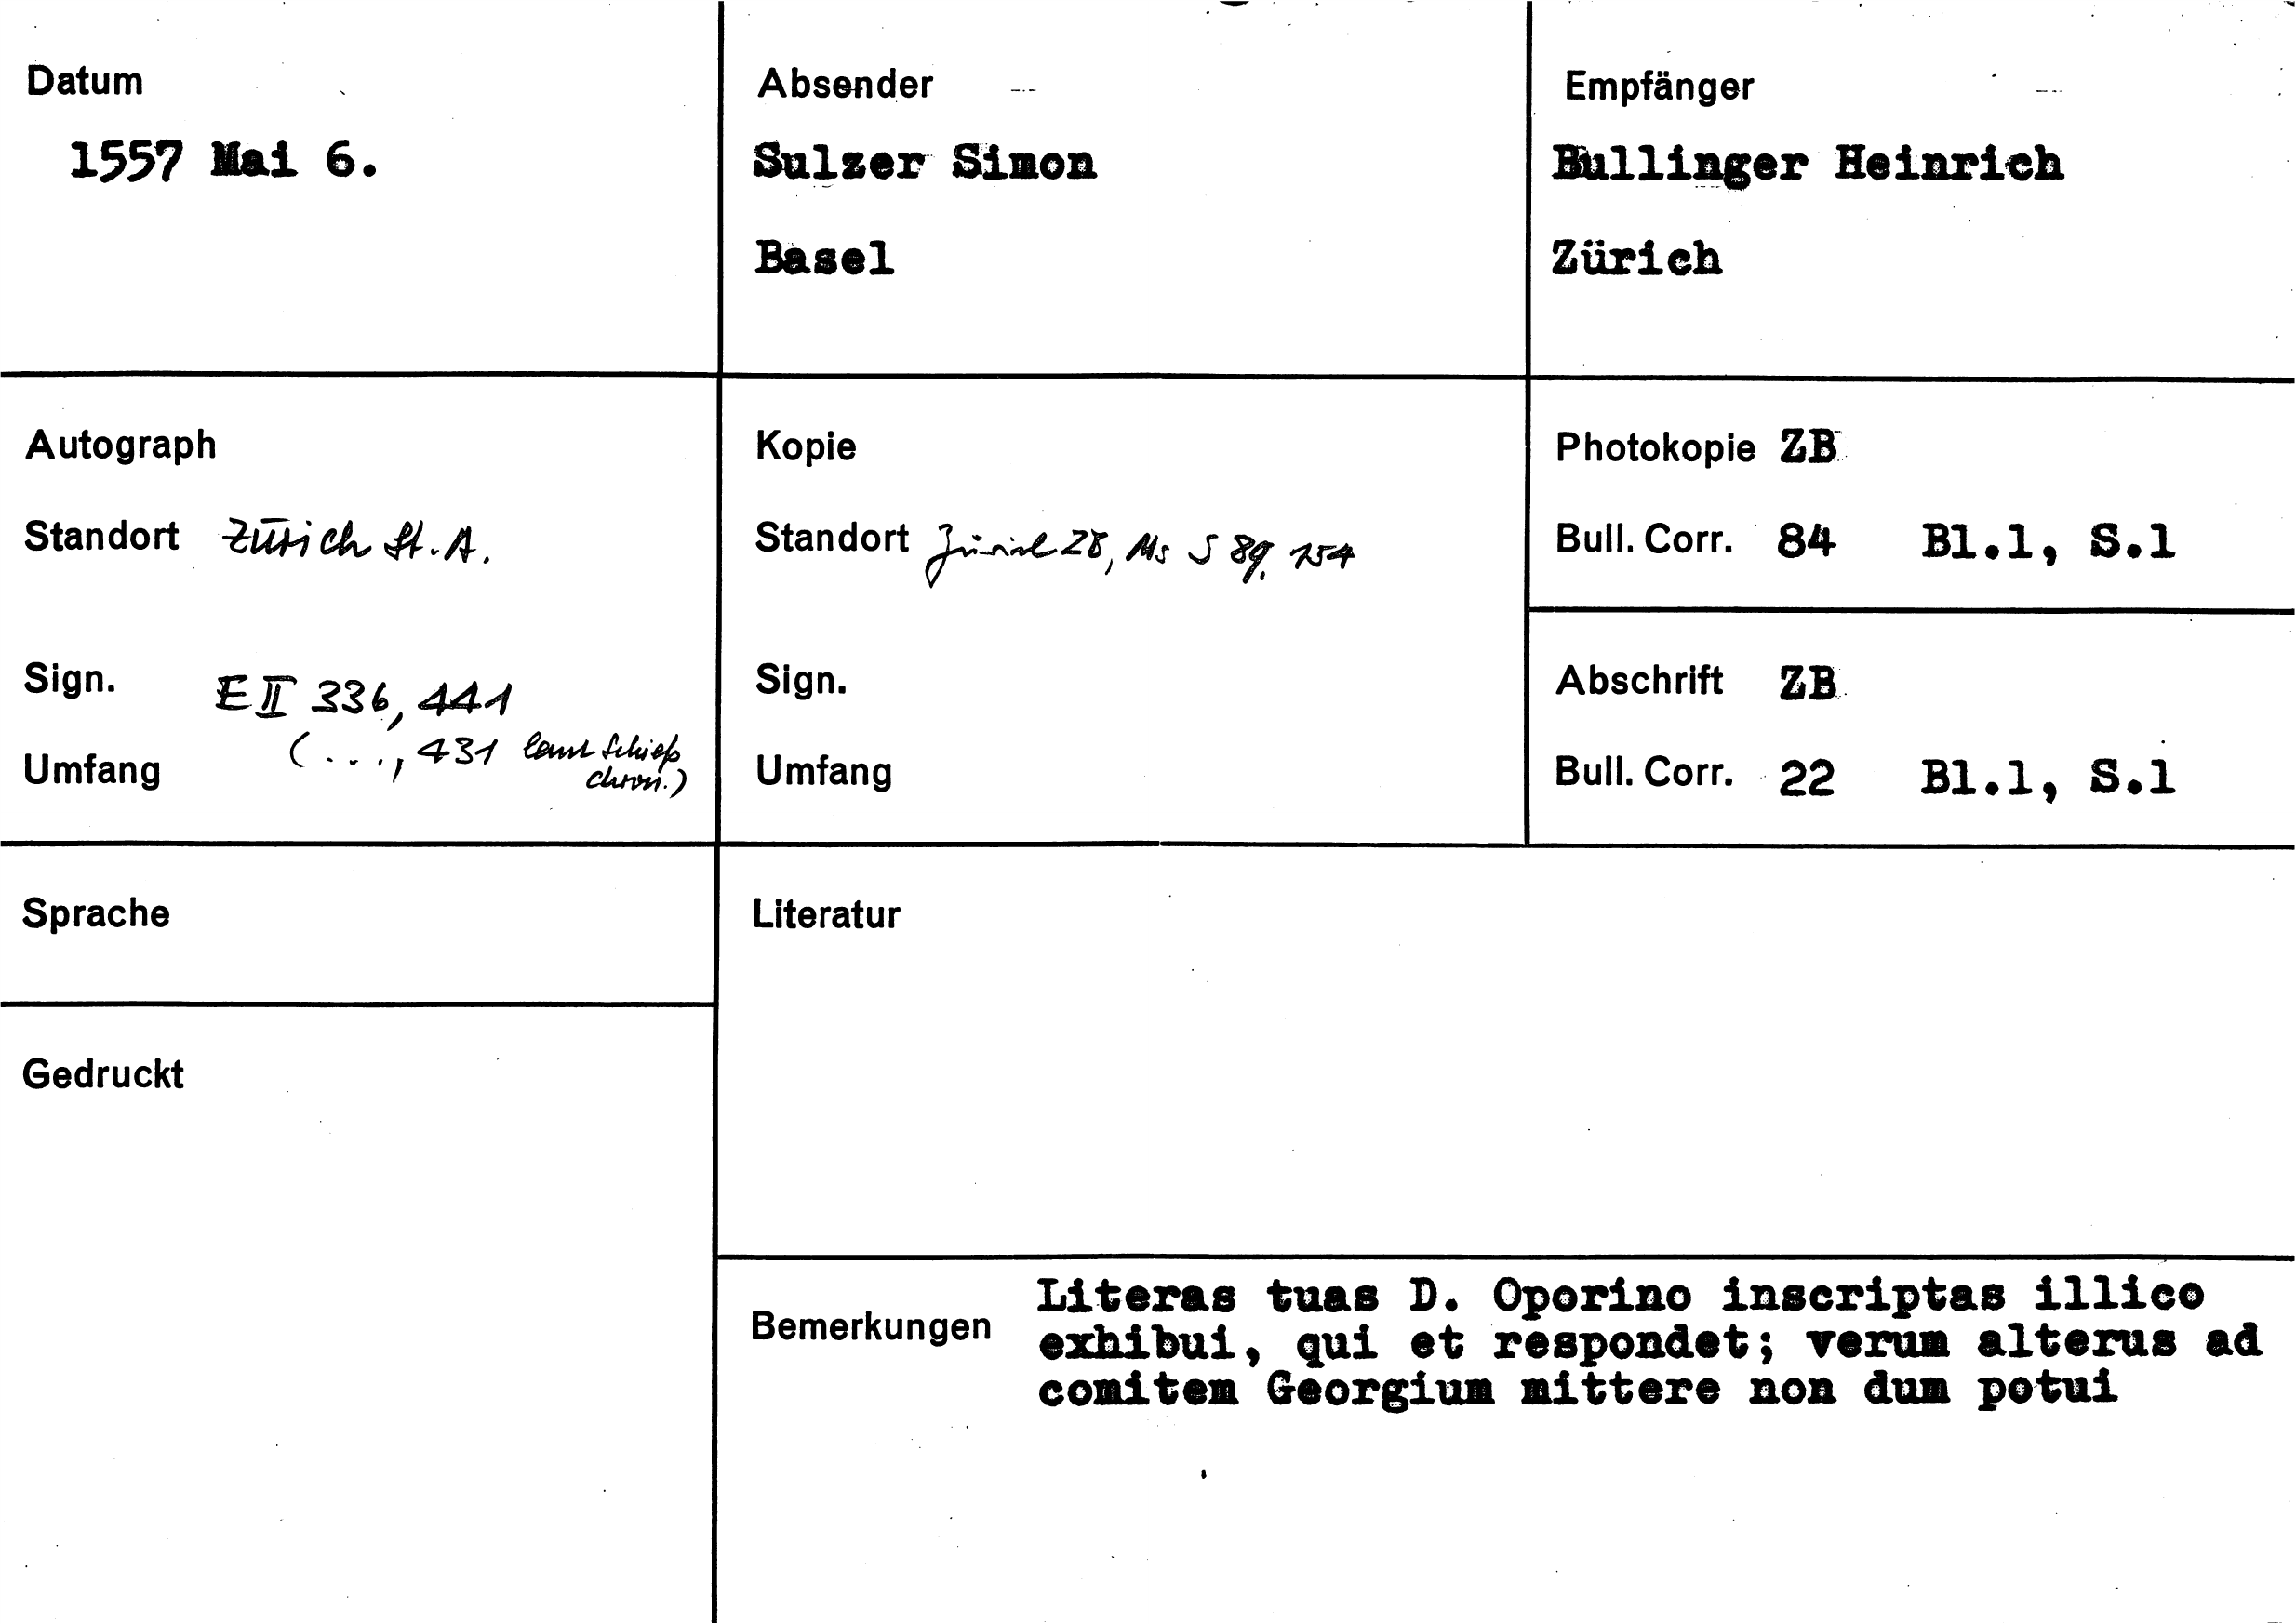 Datum
1557 Mai 6.
Absender
Sulzer Simon
Basel
Empfänger
Bullinger Heinrich
Zürich
Autograph
Standort Zürich St.A.
Sign. E II 336, 441
(..., 431 laut Schieß
chron.)
Umfang
Kopie
Standort Zürich ZB, Ms S 89, 154
Sign.
Umfang
Photokopie ZB
Bull. Corr. 84 Bl.1, S.1
Abschrift ZB
Bull. Corr. 22 Bl.1, S.1
Sprache
Literatur
Gedruckt
Bemerkungen
Literas tuas D. Oporino inscriptas illico
exhibui, qui et respondet; verum alterus ad
comitem Georgium mittere non dum potui